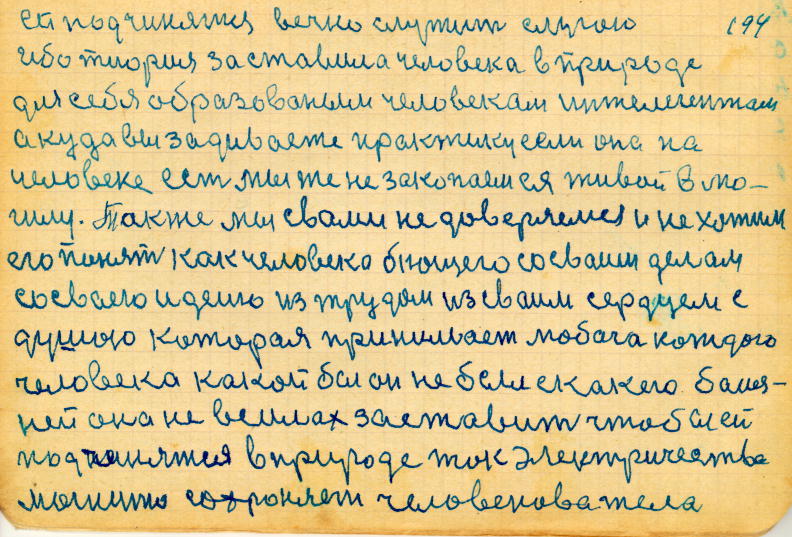 ей подчинятся вечно служит слугою 194
ибо тиория заставила человека в природе
для себя образованым человекам интелегентам
а куда вы задиваете практику если она на
человеке ест мы же не закопаемся живой в мо-
гилу. Также мы свами не доверяемся и не хотим
его понят как человека бющего сосваим делам
сосваею идеею из трудом из сваим сердцем с
душою которая принимает любога каждого
человека какой бы он не был скакего балез-
ней она не всилах заставит чтобы ей
подчинятся в природе ток электричества
магнито сохроняет человекователа